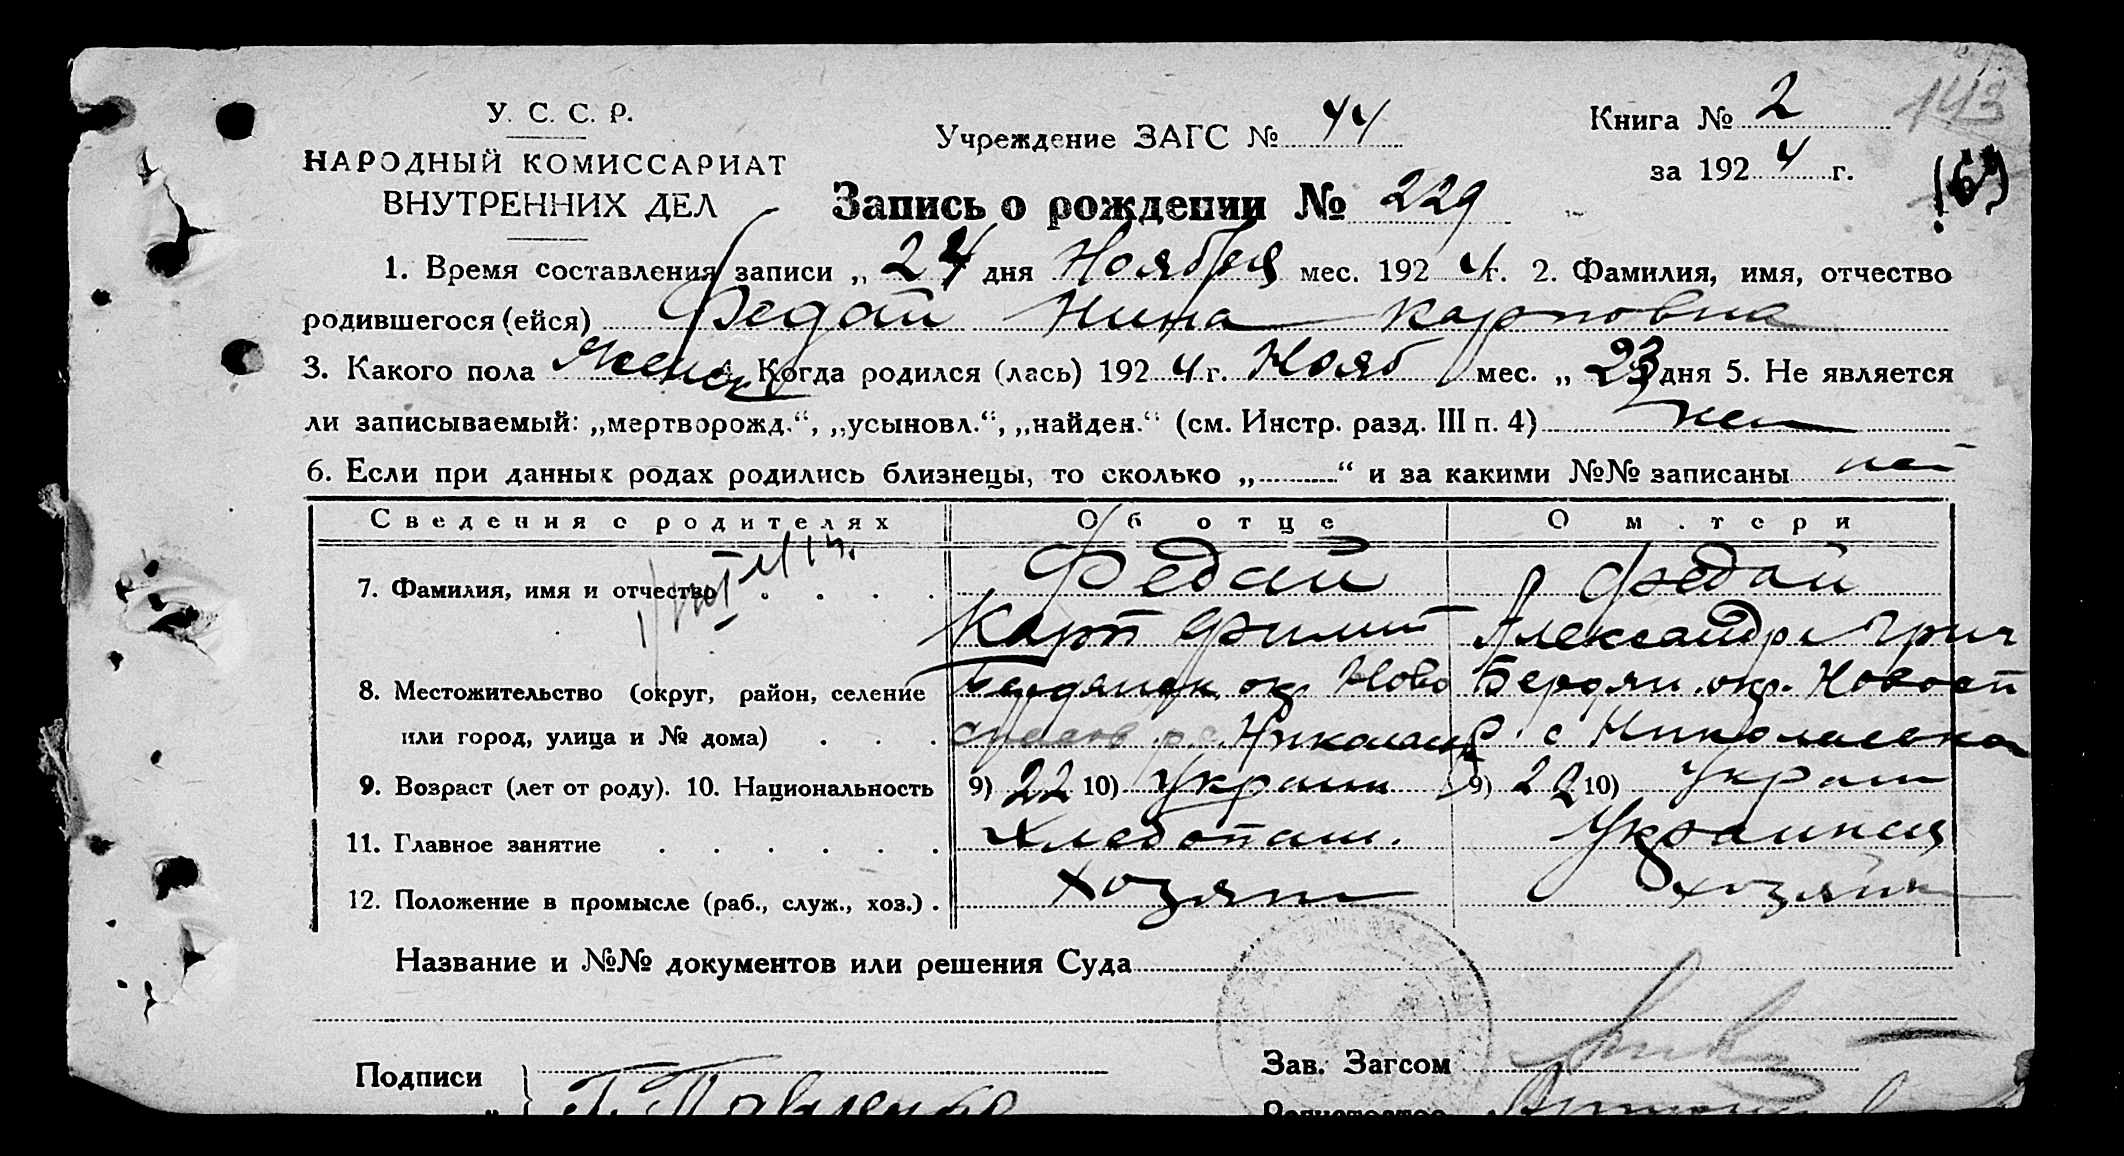 У. С. С. Р.
НАРОДНЫЙ КОМИССАРИАТ
ВНУТРЕННИХ ДЕЛ
Учреждение ЗАГС № 44
Книга № 2
за 1924 г.
143
Запись о рождении № 229
1. Время составления записи „ 24 дня Ноября мес. 1924 г. 2. Фамилия, имя, отчество
родившегося (ейся) Федай Нина Карповна
3. Какого пола женск Когда родился (лась) 1924 г. Нояб мес. „ 23 дня 5. Не является
ли записываемый: „мертворожд.“, „усыновл.“, „найден.“ (см. Инстр. разд. III п. 4) нет
6. Если при данных родах родились близнецы, то сколько „..........“ и за какими №№ записаны нет
Сведения о родителях Об отце О м.тери
7. Фамилия, имя и отчество . . . . Федай Федай
Карп Филип Александра Григ
8. Местожительство (округ, район, селение Бердянск ок. Ново Бердян. окр. Новосп
или город, улица и № дома) . . . спасов р. с. Николаевк р. с Николаевка
9. Возраст (лет от роду). 10. Национальность 9) 22 10) Украин 9) 22 10) Украин
11. Главное занятие . . . . . . Хлебопаш. Украинка
12. Положение в промысле (раб., служ., хоз.) . Хозяин хозяйк
Название и №№ документов или решения Суда
Подписи
Зав. Загсом
Г. Павленко